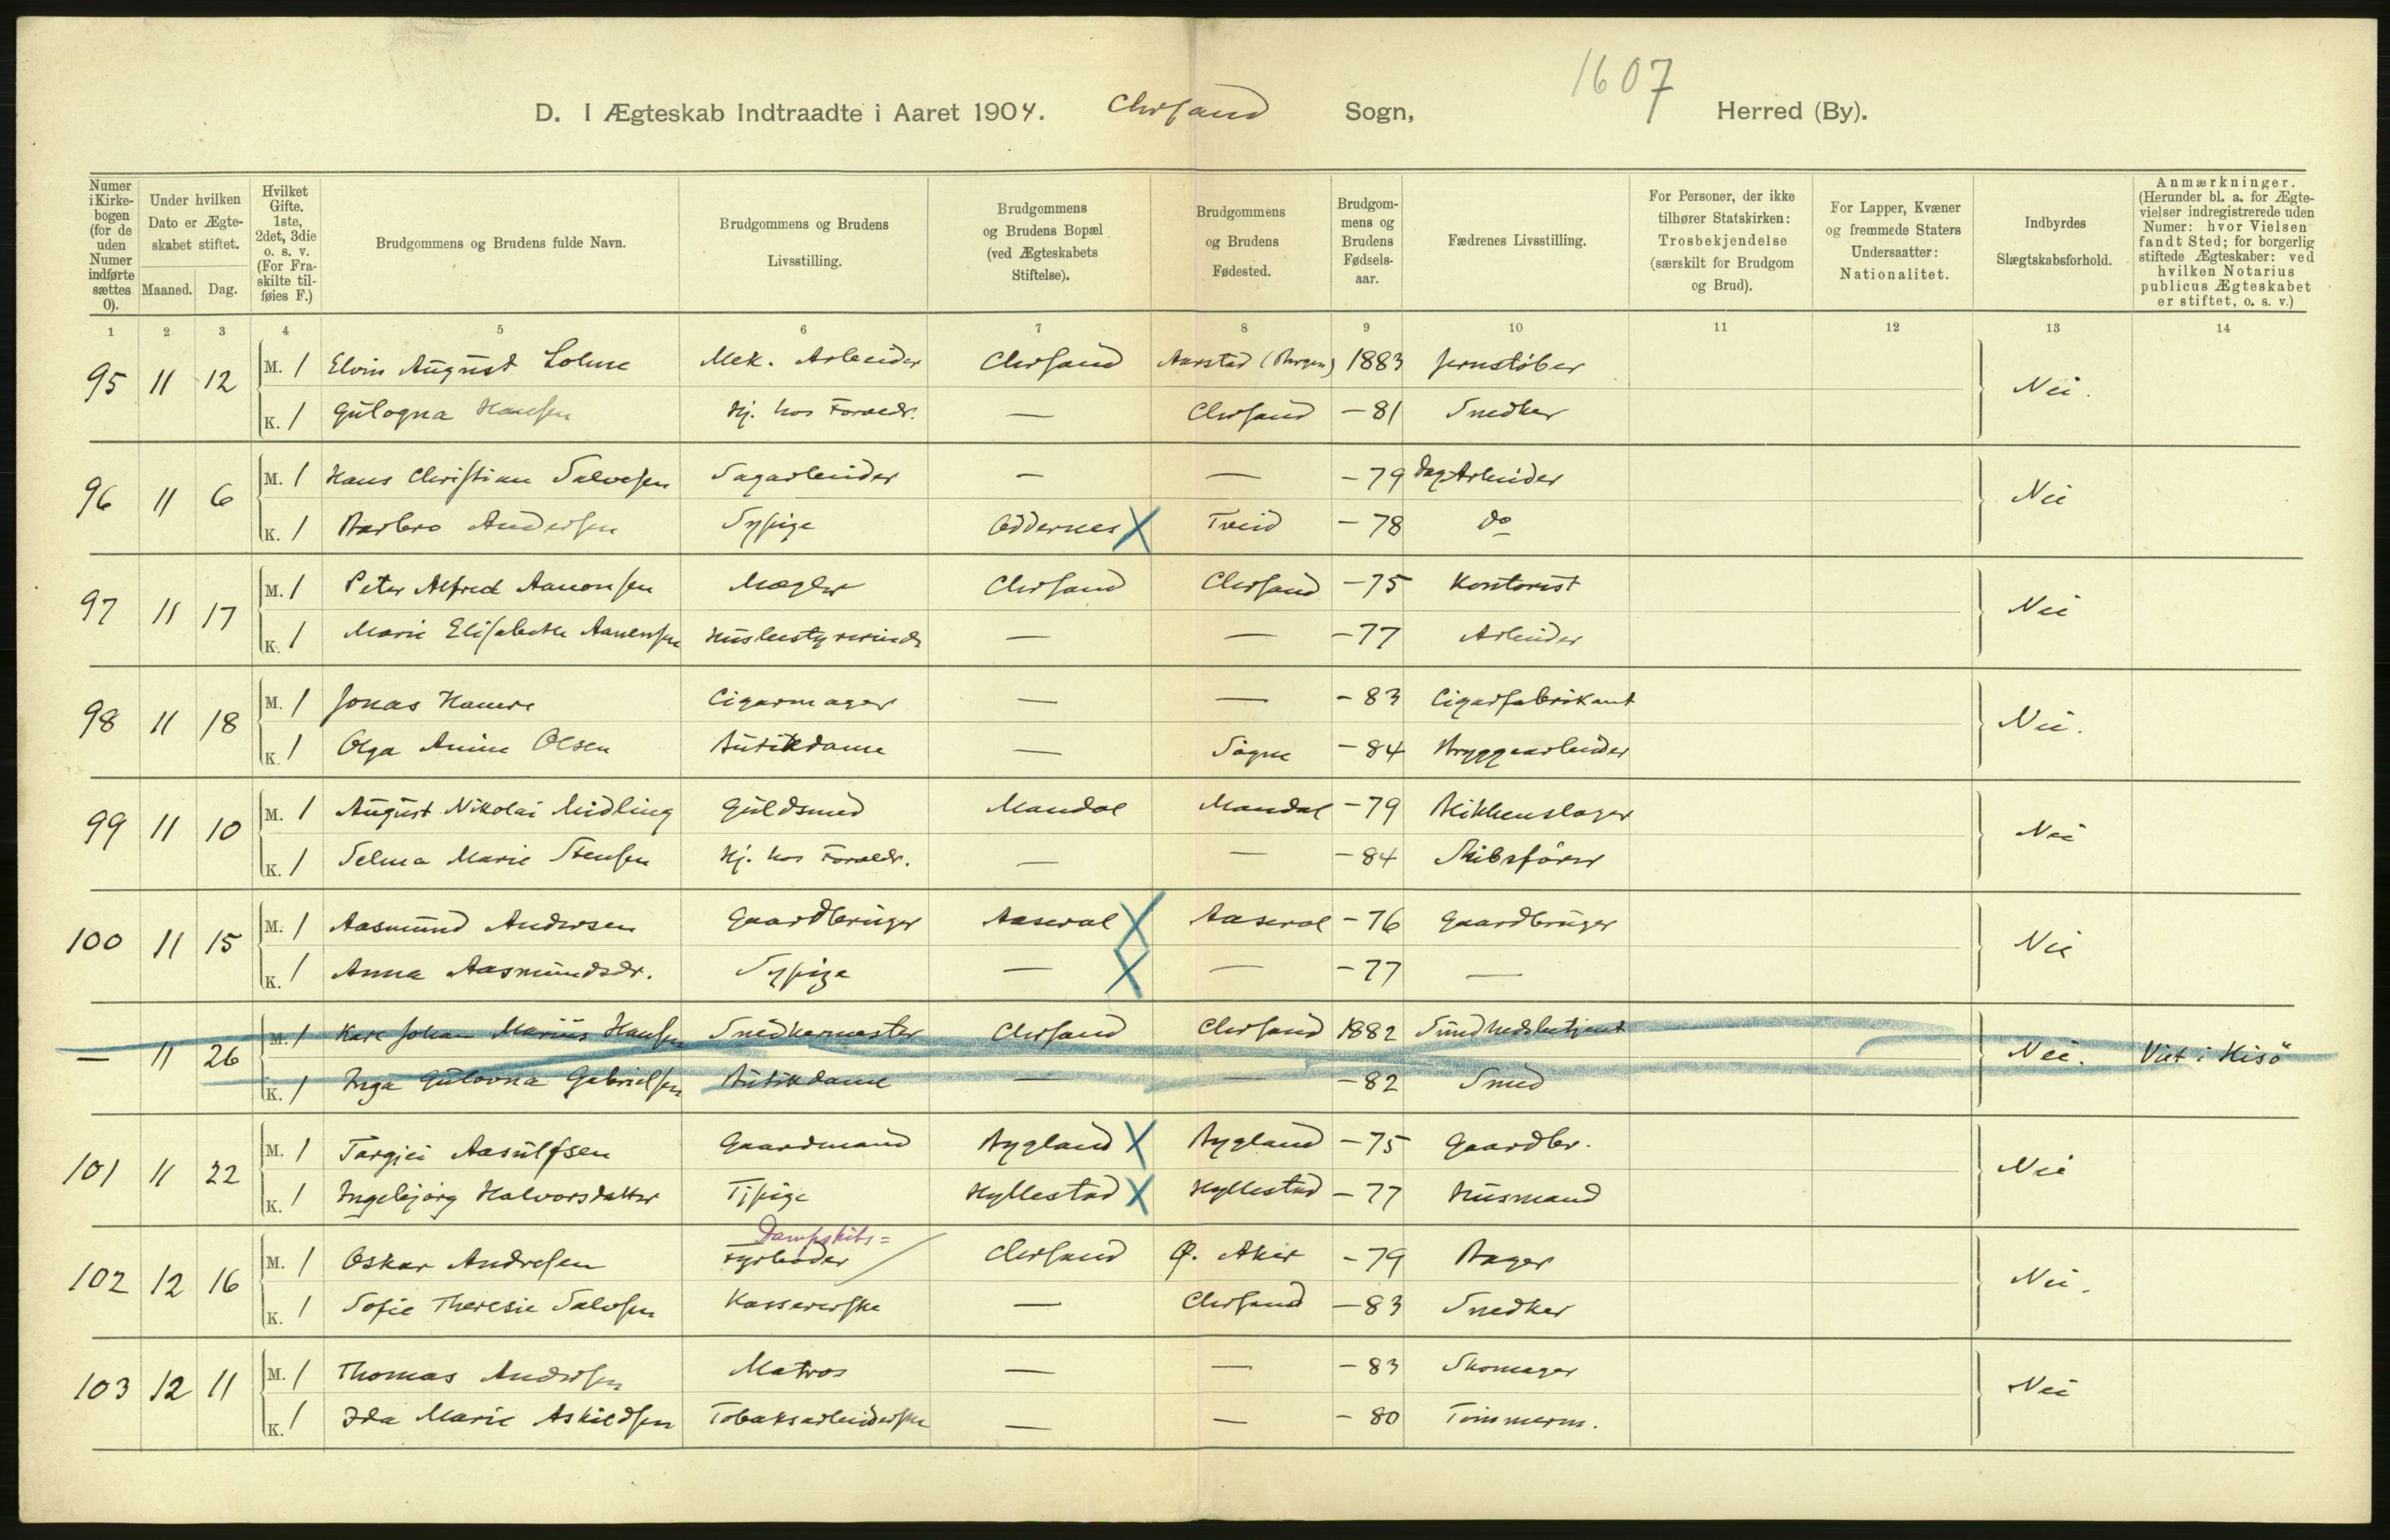 1607
D. I Ægteskab Indtraadte i Aaret 1904. Chrsand Sogn, Herred (By).
Numer i Kirke- bogen (for de uden Numer indførte sættes 0). Under hvilken Dato er Ægte- skabet stiftet. Maaned. Dag. Hvilket Gifte. 1ste, 2det, 3die o. s. v. (For Fra- skilte til- føies F.) Brudgommens og Brudens fulde Navn. Brudgommens og Brudens Livsstilling. Brudgommens og Brudens Bopæl (ved Ægteskabets Stiftelse). Brudgommens og Brudens Fødested. Brudgom- mens og Brudens Fødsels- aar. Fædrenes Livsstilling. For Personer, der ikke tilhører Statskirken: Trosbekjendelse (særskilt for Brudgom og Brud). For Lapper, Kvæner og fremmede Staters Undersaatter: Nationalitet. Indbyrdes Slægtskabsforhold. Anmærkninger. (Herunder bl. a. for Ægte- vielser indregistrerede uden Numer: hvor Vielsen fandt Sted; for borgerlig stiftede Ægteskaber: ved hvilken Notarius publicus Ægteskabet er stiftet, o. s. v.)
1 2 3 4 5 6 7 8 9 10 11 12 13 14
95 11 12 M. 1 Elvin August Lohne Mek. Arbeider Chrsand Aarstad (Bergen) 1883 Jernstøber Nei.
K. 1 Gulogna Hansen Hj. hos Foreldr. — Chrsand -81 Snedker
96 11 6 M. 1 Hans Christian Salvesen Sagarbeider — — -79 Dag-Arbeider Nei
K. 1 Barbro Andersen Sypige Oddernes X Tveid -78 do
97 11 17 M. 1 Peter Alfred Aanonsen Mægler Chrsand Chrsand -75 Kontorist Nei
K. 1 Marie Elisabeth Aanensen Husbestyrerinde — — -77 Arbeider
98 11 18 M. 1 Jonas Hamre Cigarmager — — -83 Cigarfabrikant Nei.
K. 1 Olga Amine Olsen Butikdame — Søgne -84 Bryggearbeider
99 11 10 M. 1 August Nikolai Midling Guldsmed Mandal Mandal -79 Blikkenslager Nei
K. 1 Selma Marie Stensen Hj. hos Foreldr. — — -84 Skibsfører
100 11 15 M. 1 Aasmund Andersen Gaardbruger Aaseral X Aaseral -76 Gaardbruger Nei
K. 1 Anna Aasmundsdr. Sypige — X — -77 —
— 11 26 M. 1 Karl Johan Marius Hansen Snedkermester Chrsand Chrsand 1882 Sundhedsbetjent Nei. Viet i Hisö
K. 1 Inga Gulovna Gabrielsen Butikdame — — -82 Smed
101 11 22 M. 1 Targjei Aasulfsen Gaardmand Bygland X Bygland -75 Gaardbr. Nei
K. 1 Ingebjørg Halvorsdatter Tjpige Hyllestad X Hyllestad -77 Husmand
Dampskibs=
102 12 16 M. 1 Oskar Andresen Fyrbøder Chrsand Ø. Aker -79 Bager Nei.
K. 1 Sofie Theresie Salvesen Kassererske — Chrsand -83 Snedker
103 12 11 M. 1 Thomas Andersen Matros — — -83 Skomager Nei
K. 1 Ida Marie Askildsen Tobaksarbeiderske — — -80 Tømmerm.